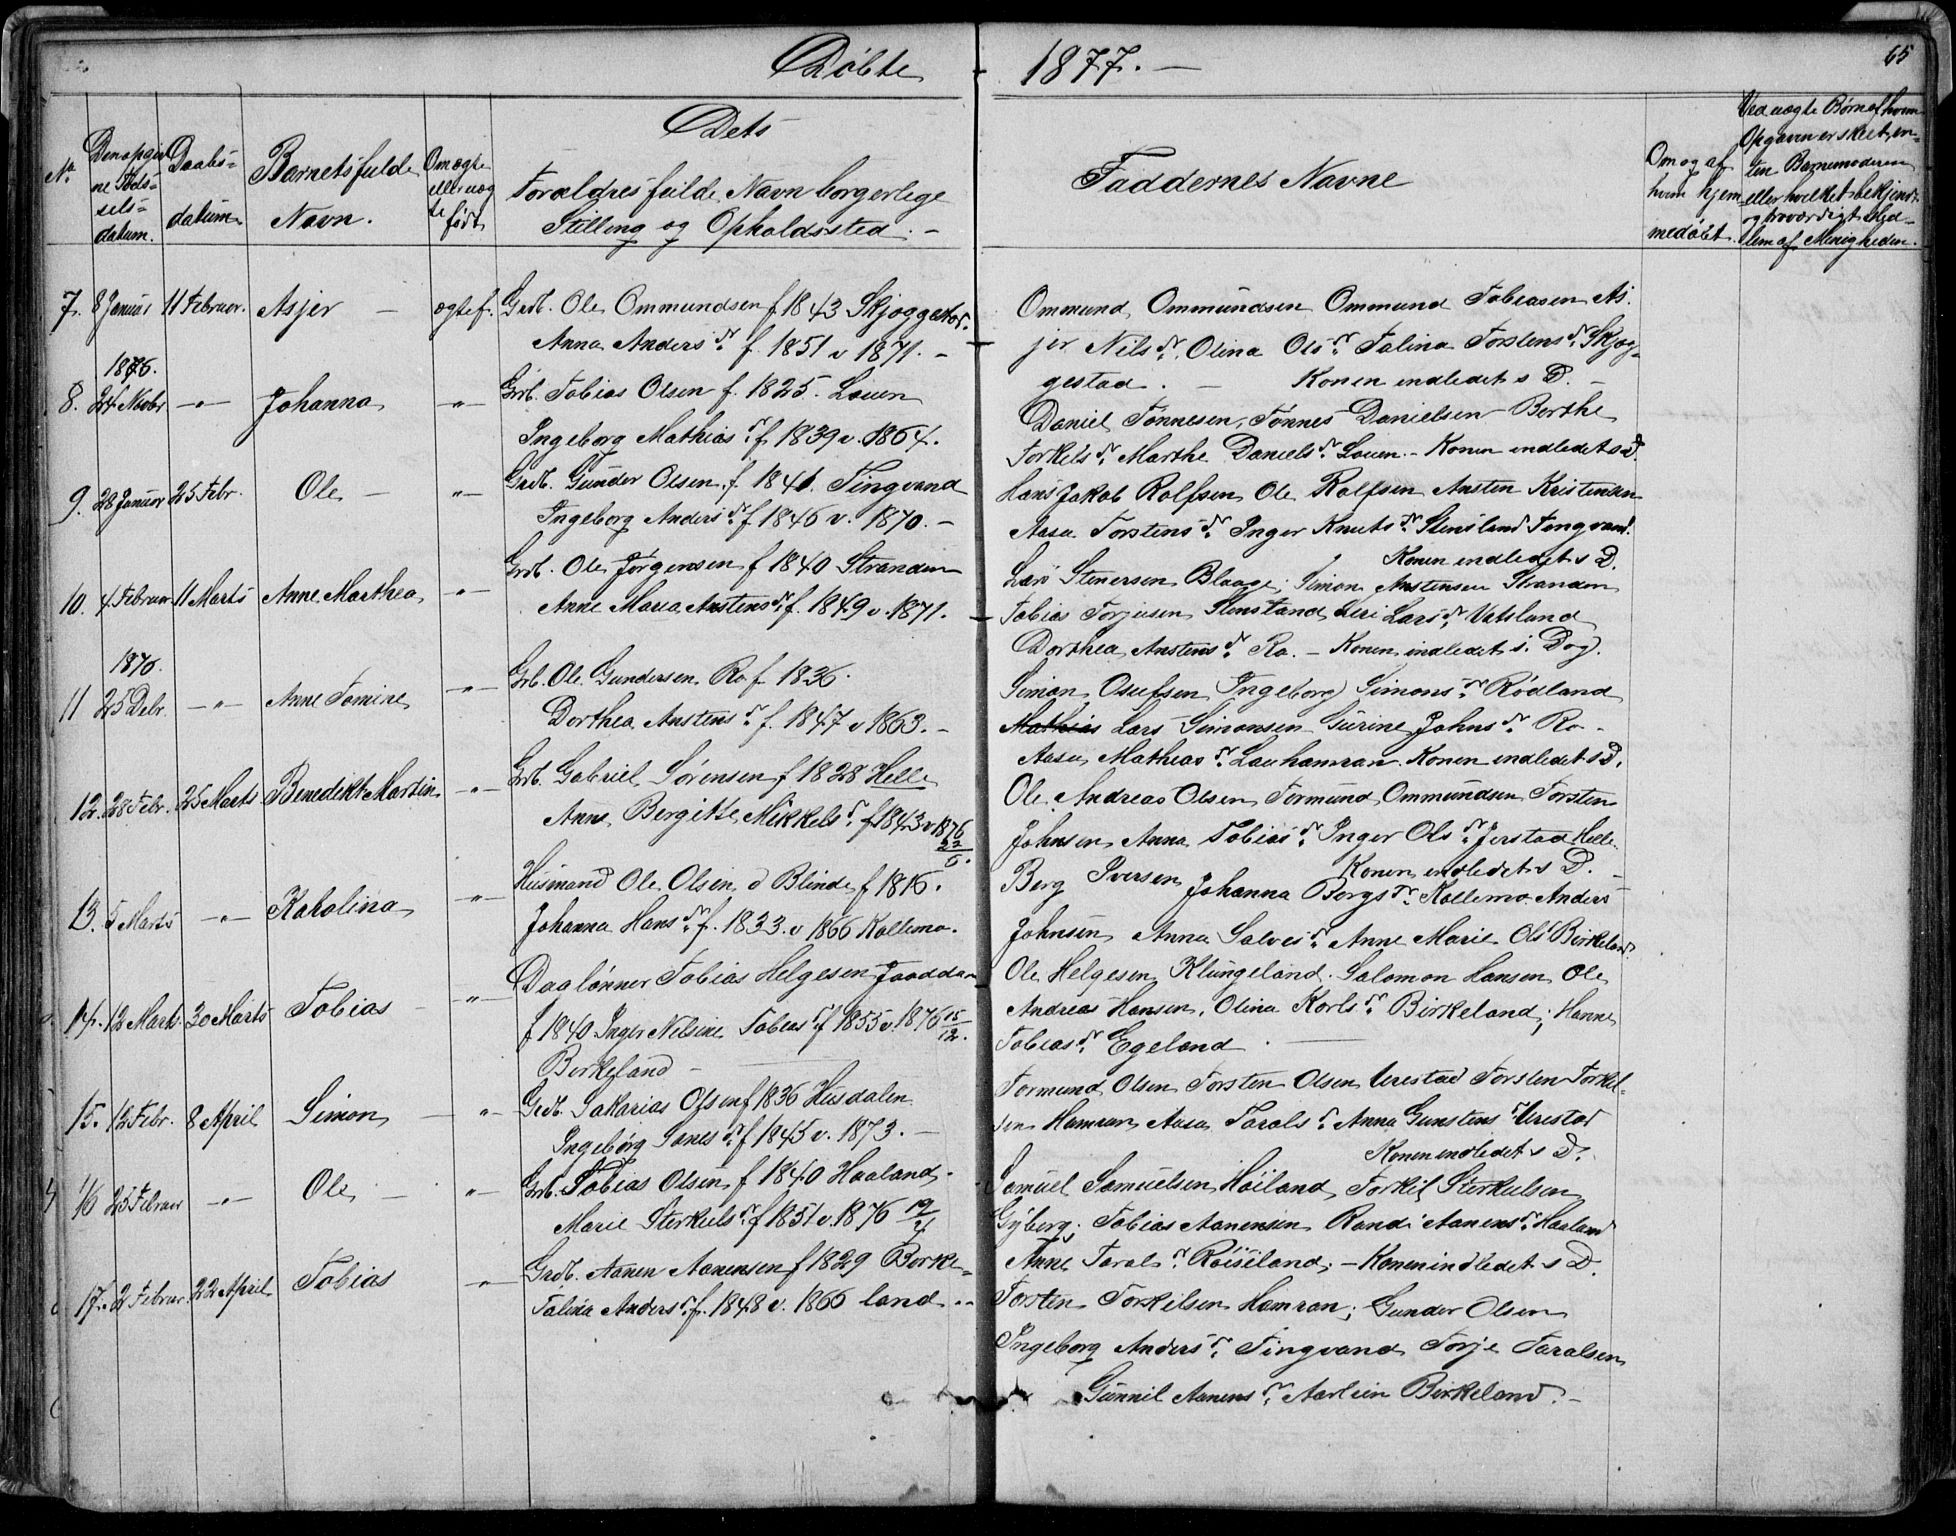 Döbte 1877. —
65
No
Den opgivne Födselsdatum.
Daabsdatum
Barnets fulde Navn.
Om ægte eller uægte født
Dets
Forældres fulde Navn borgerlege
Stilling og Opholdssted. —
Faddernes Navne
Om og af hvem hjemmedöbt.
Ved uægte Børn af hvem Opgaven er skeet, enten Barnemoderen eller hvilket bekjendt og troværdigt Medlem af Menigheden.
7. 8 Januar 11 Februar. Asjer — ægtef. Grdb. Ole Ommundsen f 1843 Skjoggestad.
Anna Anders dr. f. 1851 v 1871. —
Ommund Ommundsen Ommund Tobiasen As-
jer Nils dr. Olina Ols dr. Talina Torstens dr. Skjog-
gestad. — Konen indledet s D. —
1876.
8. 24 Novbr —"— Johanna —"— Grb. Tobias Olsen f. 1825. Louen
Ingeborg Mathias dr. f 1839 v. 1864.
Daniel Tönnesen, Tönnes Danielsen Berthe
Torkels dr. Marthe Daniels dr. Louen. — Konen indledet s D.
9. 28 Januar 25 Febr. Ole — —"— Grdb. Gunder Olsen. f 1841. Tingvand
Ingeborg Anders dr. f 1846 v. 1870. —
Hans Jakob Rolfsen Ole Rolfsen Ansten Kristensen
Aasa Torstens dr. Inger Knuts dr. Stensland Tingvand.
Konen indledet s D.
10. 4 Februar 11 Marts Anne Marthea —"— Grdb. Ole Jörgensen f 1840 Stranden
Anne Maria Anstens dr. f. 1849 v. 1871.
Lars Stenersen Blaage; Simon Anstensen Stranden
Tobias Torjusen Stensland, Siri Lars dr. Vatsland
Dorthea Anstens dr. Ro. — Konen indledet s. Dag.
1876.
11 25 Debr. —"— Anne Tomine —"— Grb. Ole Gundersen Ro f. 1836.
Dorthea Anstens dr. f. 1847 v 1863. —
Simon Osufsen Ingeborg Simons dr. Rödland
Mathias Lars Simonsen Gurine Johns dr. Ro —
Aasa Mathias dr. Lauhamran Konen indledet s D.
12. 28 Febr. 25 Marts Benedikt Martin —"— Grb. Gabriel Sörensen f 1828 Helle
Anne Bergitte Mikkels dr. f 1843 v 1876 22/5.
Ole Andreas Olsen Tormund Ommundsen Torsten
Johnsen Anna Tobias dr. Inger Ols dr. Jerstad Helle.
Konen indledet s D. —
13. 5 Marts —"— Karolina —"— Husmand Ole Olsen d Blinde f 1816.
Johanna Hans dr. f. 1833. v 1866 Kollemo.
Berg Iversen Johanna Bergs dr. Kollemo Anders
Johnsen Anna Salves dr. Anne Marie Ols Birkeland.
14. 12 Marts. 30 Marts Tobias — —"— Daglönner Tobias Helgesen Jaaddan
f 1840 Inger Nelsine Tobias dr. f 1855 v. 1876 15/12.
Birkeland —
Ole Helgesen Klungeland. Salomon Hansen Ole
Andreas Hansen, Olina Karls dr. Birkeland; Hanne
Tobias dr. Egeland.
15. 12 Febr. 8 April Simon — —"— Grdb. Sakarias Olsen f 1836 Husdalen
Ingeborg Sanes dr. f 1845 v. 1873. —
Tormund Olsen Torsten Olsen Verestad Torsten Torkel-
sen Hamran Aasa Tarals dr. Anna Gunstens dr. Verestad
Konen indledet s D.
16 25 Februar —"— Ole — —"— Grb. Tobias Olsen f 1840 Haaland.
Marie Sterkels dr. f 1851 v. 1876 19/4
Samuel Samuelsen Höiland, Torkil Sterkelsen
Gyberg; Tobias Aanensen Randi Aanens dr. Haaland
Anne Tarals dr. Röiseland; — Konen indledet s D.
17. 2 Februar. 22 April Tobias —"— Grdb. Aanen Aanensen f 1829 Birke-
Talina Anders dr. f. 1848 v. 1866 land. —
Torsten Torkilsen Hamran; Gunder Olsen
Ingeborg Anders dr. Tingvand Torje Taralsen
Gunnil Aanens dr. Aarlien Birkeland. —